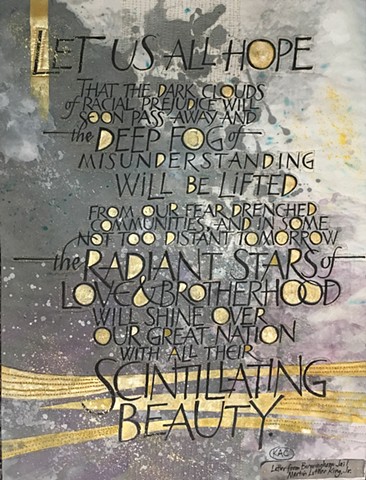 LET US ALL HOPE
THAT THE DARK CLOUDS
of RACIAL PREJUDICE WILL
SOON PASS AWAY AND
the DEEP FOG of
MISUNDERSTANDING
WILL BE LIFTED
FROM OUR FEAR DRENCHED
COMMUNITIES, AND IN SOME
NOT TOO DISTANT TOMORROW
the RADIANT STARS of
LOVE & BROTHERHOOD
WILL SHINE OVER
OUR GREAT NATION
WITH ALL THEIR
SCINTILLATING
BEAUTY.
KAC
Letter from Birmingham Jail
Martin Luther King, Jr.